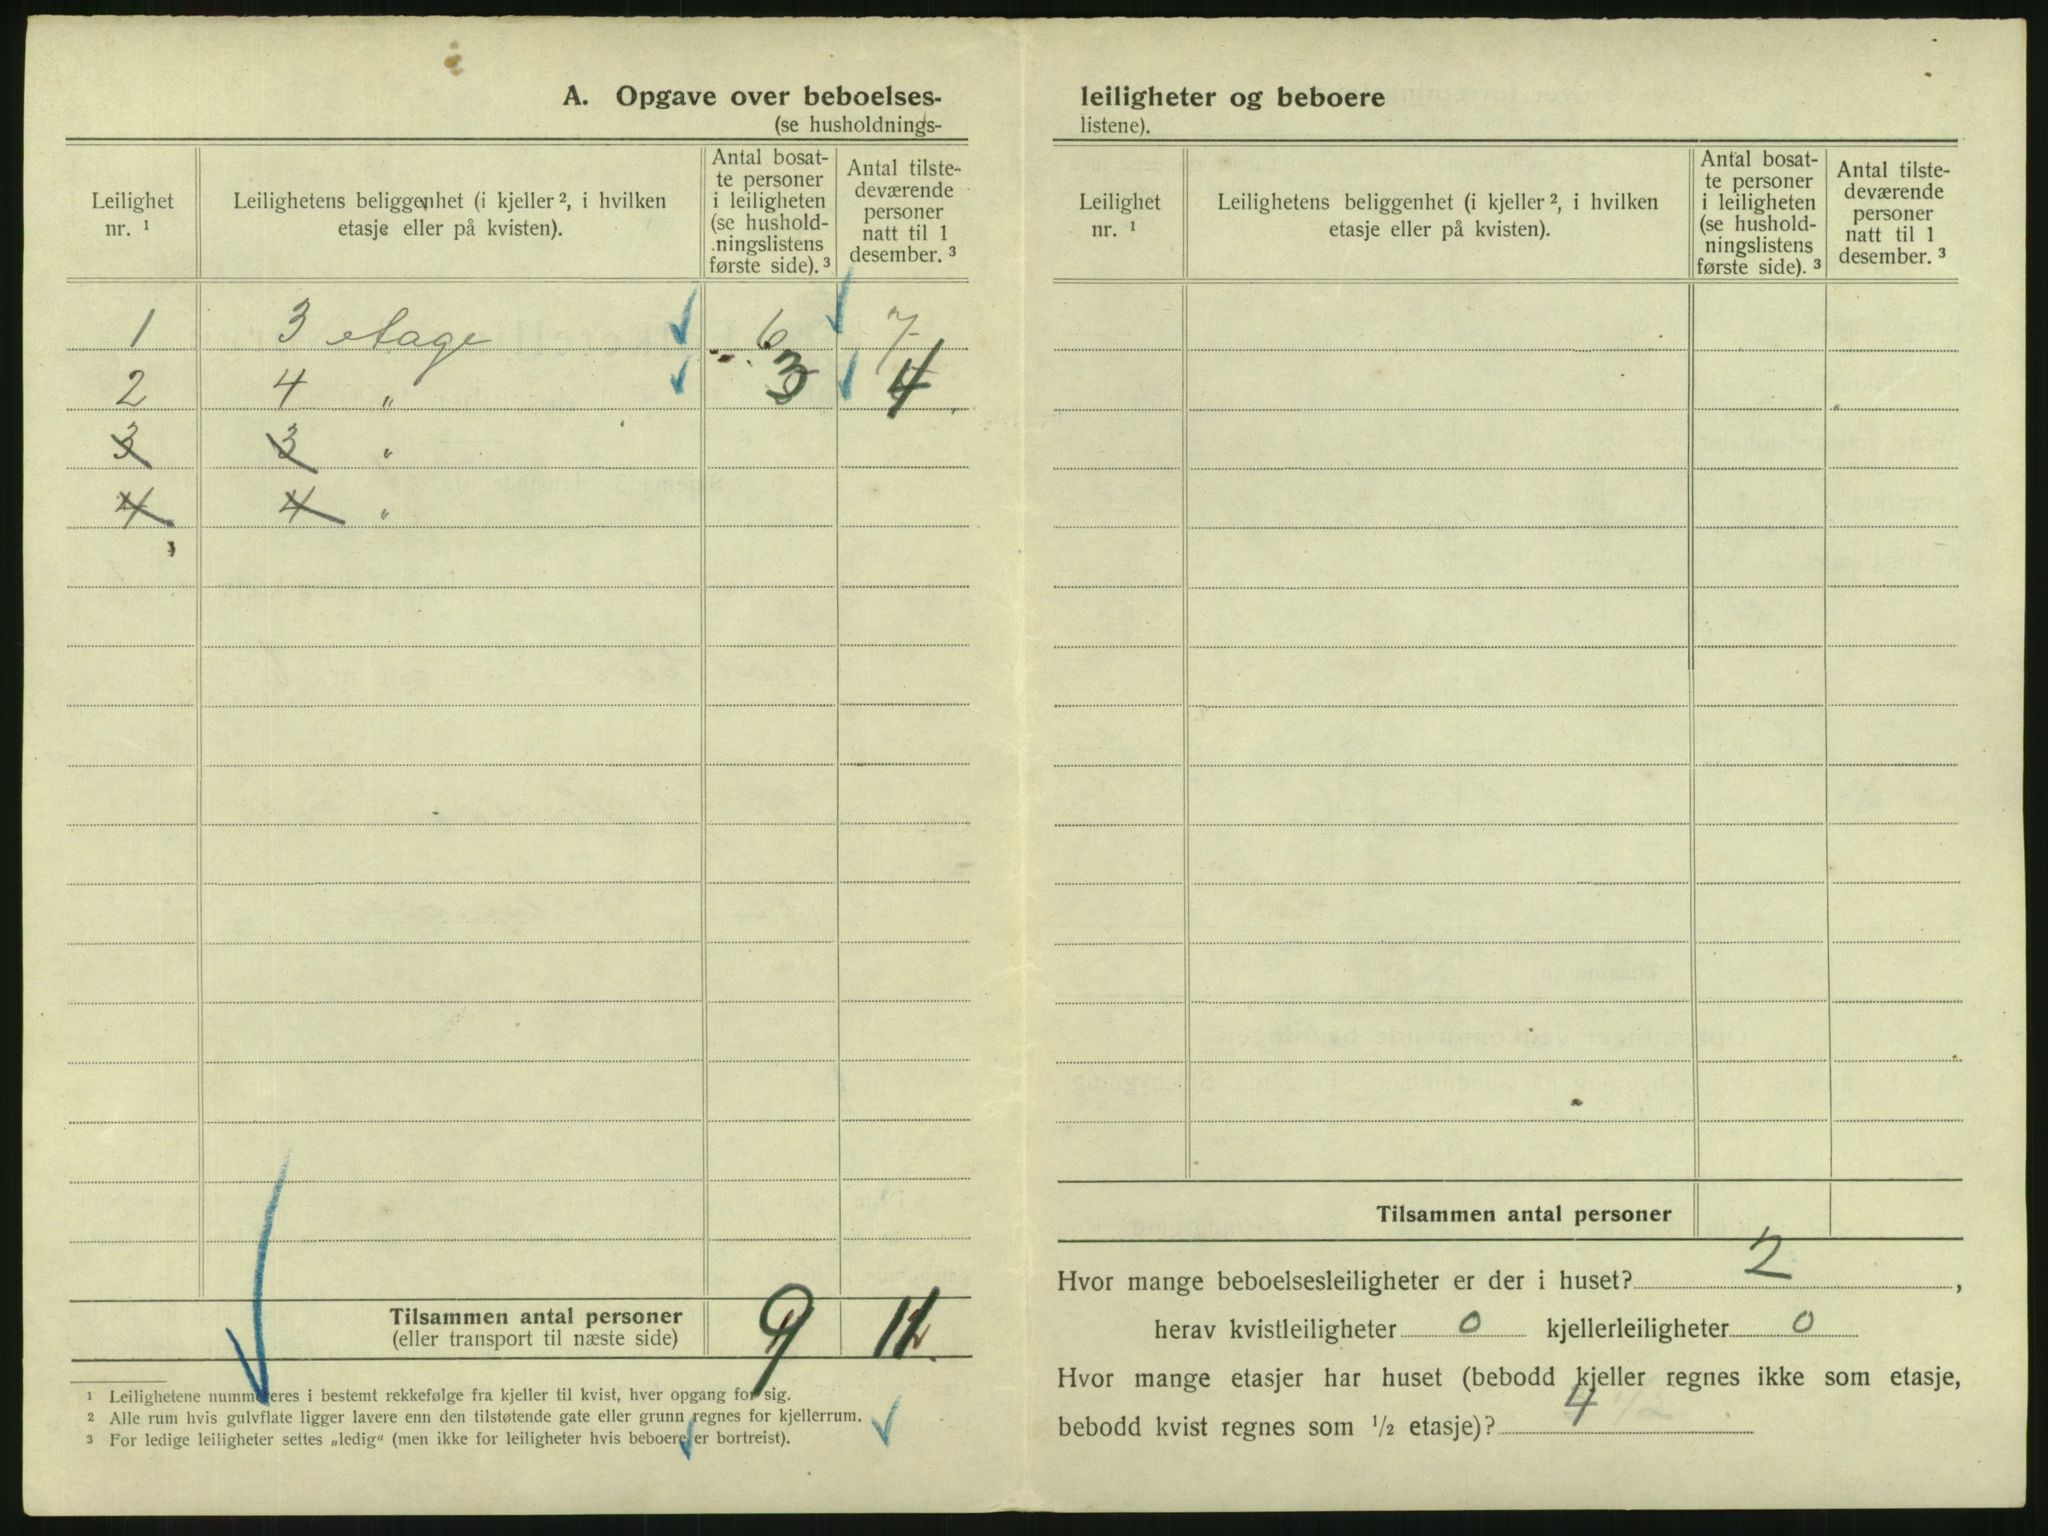 A. Opgave over beboelses-
(se husholdnings-
Leilighet
nr. ¹
Leilighetens beliggenhet (i kjeller ², i hvilken
etasje eller på kvisten).
Antal bosat-
te personer
i leiligheten
(se hushold-
ningslistens
første side). ³
Antal tilste-
deværende
personer
natt til 1
desember. ³
1 3 etage 6 7
2 4 " 3 4
3 3 "
4 4 "
Tilsammen antal personer
(eller transport til næste side)
9 11
¹ Leilighetene nummereres i bestemt rekkefølge fra kjeller til kvist, hver opgang for sig.
² Alle rum hvis gulvflate ligger lavere enn den tilstøtende gate eller grunn regnes for kjellerrum.
³ For ledige leiligheter settes „ledig" (men ikke for leiligheter hvis beboere er bortreist).
leiligheter og beboere
listene).
Leilighet
nr. ¹
Leilighetens beliggenhet (i kjeller ², i hvilken
etasje eller på kvisten).
Antal bosat-
te personer
i leiligheten
(se hushold-
ningslistens
første side). ³
Antal tilste-
deværende
personer
natt til 1
desember. ³
Tilsammen antal personer
Hvor mange beboelsesleiligheter er der i huset? 2,
herav kvistleiligheter 0 kjellerleiligheter 0
Hvor mange etasjer har huset (bebodd kjeller regnes ikke som etasje,
bebodd kvist regnes som ½ etasje)? 4